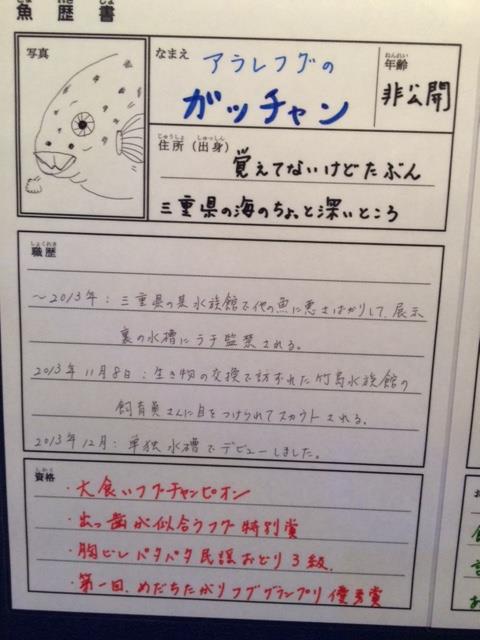 魚歴書
写真
なまえ
アラレフグの
ガッチャン
年齢
非公開
住所（出身）
覚えてないけどたぶん
三重県の海のちょっと深いところ
職歴
〜2013年：三重県の某水族館で他の魚に悪さばかりして、展示
裏の水槽にラチ監禁される。
2013年11月8日：生き物の交換で訪ずれた竹島水族館の
飼育員さんに目をつけられてスカウトされる。
2013年12月：単独水槽でデビューしました。
資格
・大食いフグチャンピオン
・出っ歯が似合うフグ特別賞
・胸ビレパタパタ民謡おどり3級.
・第一回、めだちたがりフググランプリ優秀賞